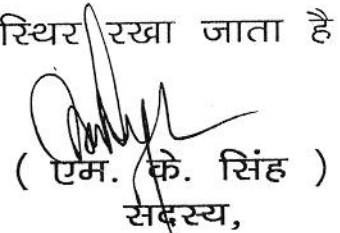 स्थिर रखा जाता है
( एम. के. सिंह )
सदस्य,